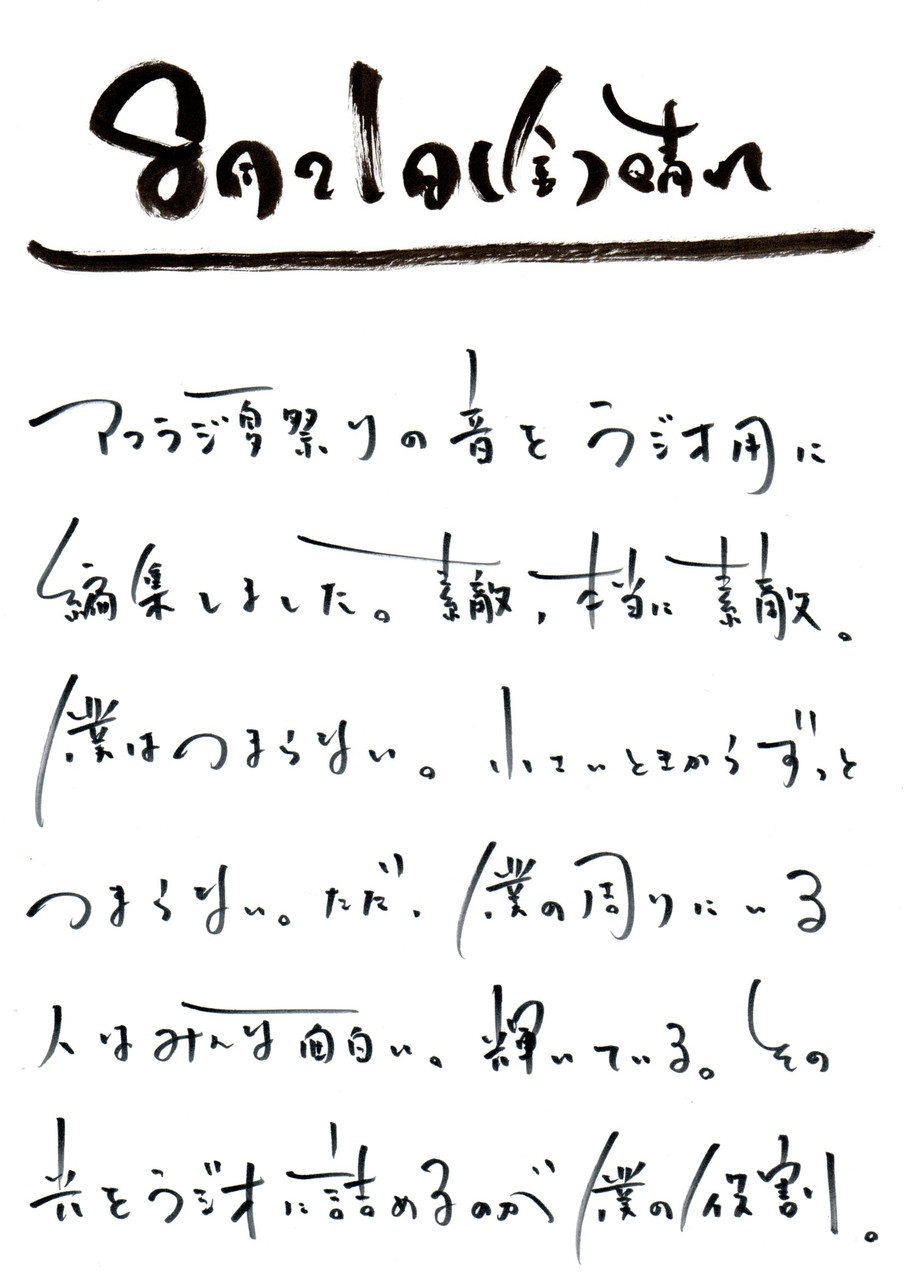 8月21日(金)晴れ
アフラジ夏祭りの音をラジオ用に
編集しました。素敵、本当に素敵。
僕はつまらない。小さいときからずっと
つまらない。ただ、僕の周りにいる
人はみんな面白い。輝いている。その
光をラジオに詰めるのが僕の役割。